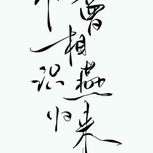 曾相燕归来
识